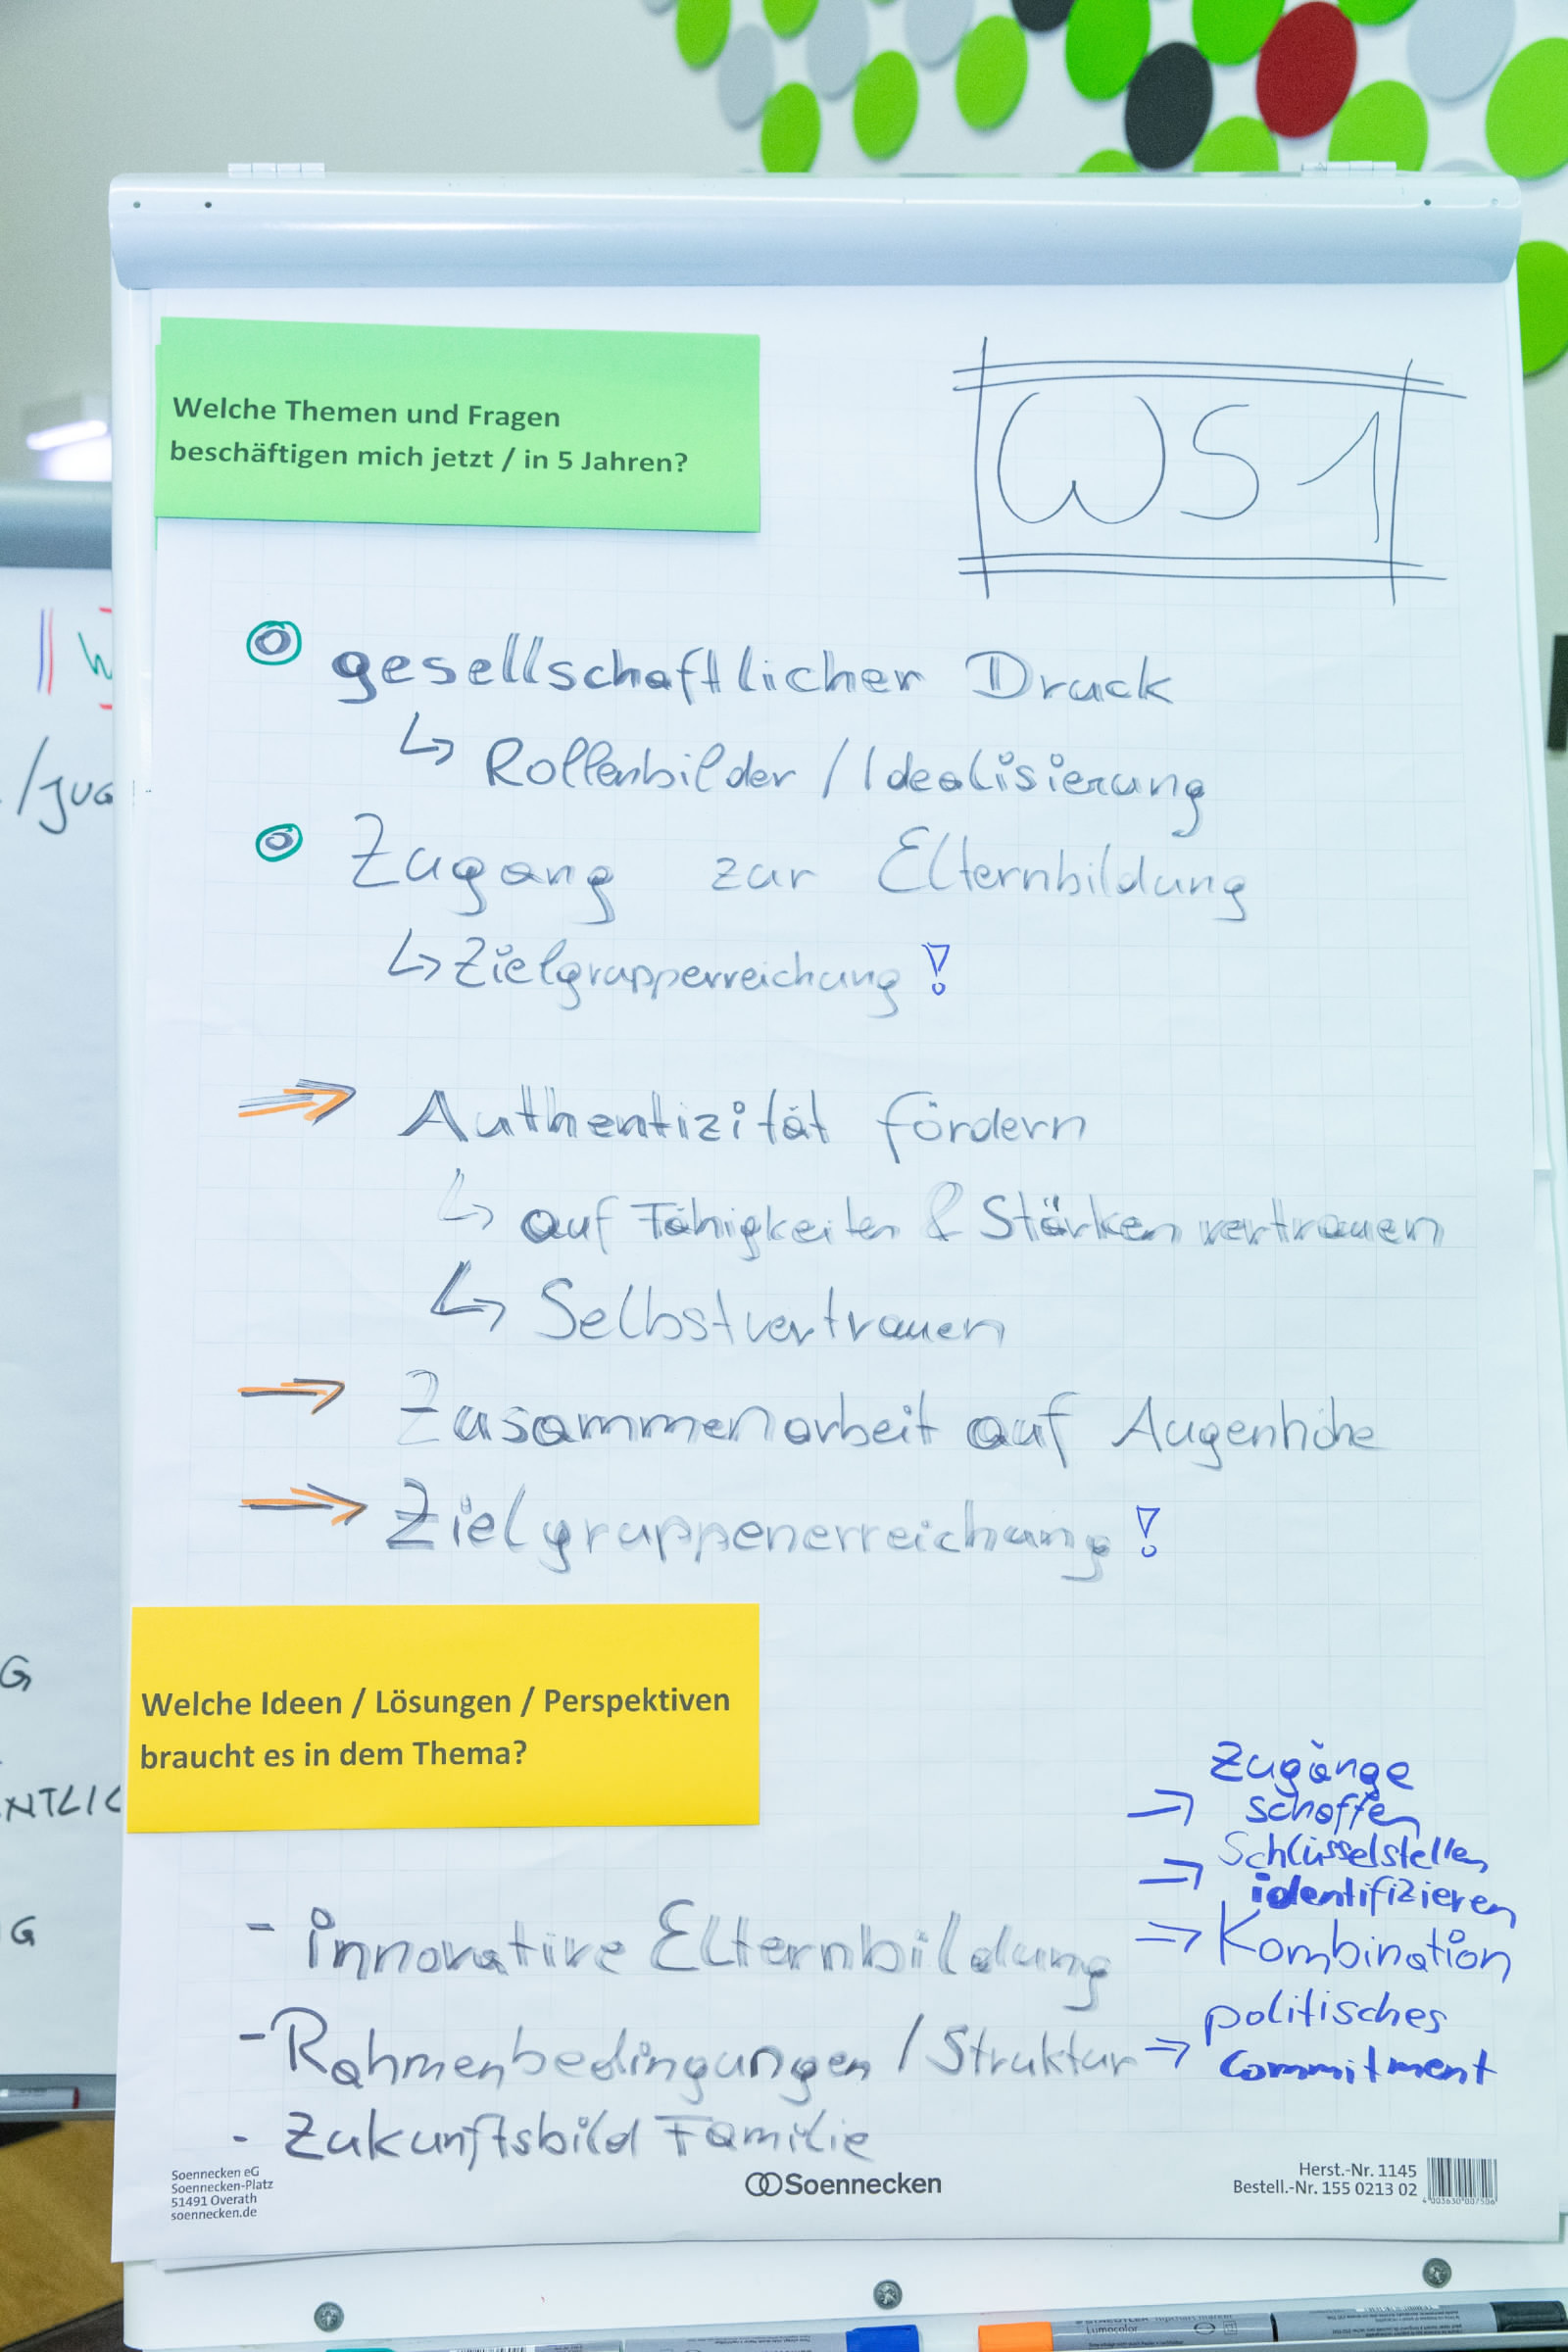 Welche Themen und Fragen
beschäftigen mich jetzt / in 5 Jahren?
WS 1
gesellschaftlicher Druck
↳ Rollenbilder / Idealisierung
Zugang zur Elternbildung
↳ Zielgrupperreichung !
⇒ Authentizität fördern
↳ auf Fähigkeiten & Stärken vertrauen
↳ Selbstvertrauen
→ Zusammenarbeit auf Augenhöhe
⇒ Zielgruppenerreichung !
Welche Ideen / Lösungen / Perspektiven
braucht es in dem Thema?
⇒ Zugänge
schaffen
⇒ Schlüsselstellen
identifizieren
- innovative Elternbildung ⇒ Kombination
- Rahmenbedingungen / Struktur ⇒ politisches
commitment
- Zukunftsbild Familie
Soennecken eG
Soennecken-Platz
51491 Overath
soennecken.de
Soennecken
Herst.-Nr. 1145
Bestell.-Nr. 155 0213 02
/JUG
G
NTLIC
G
STAEDTLER
Lumocolor